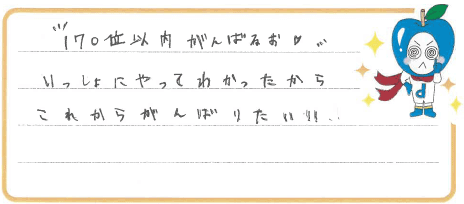 170位以内がんばるお♡…
いっしょにやってわかったから
これからがんばりたい!!!..
d